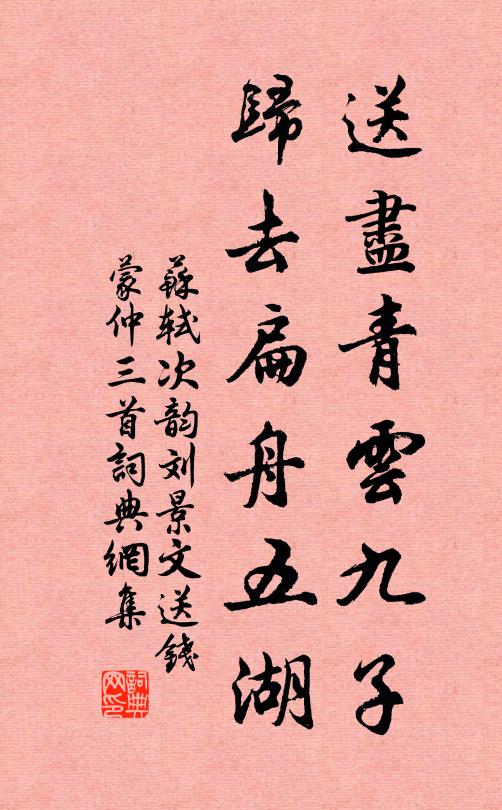 送盡青雲九子
歸去扁舟五湖
蘇軾次韵刘景文送錢
蒙仲三首詞典網集
詞典网印